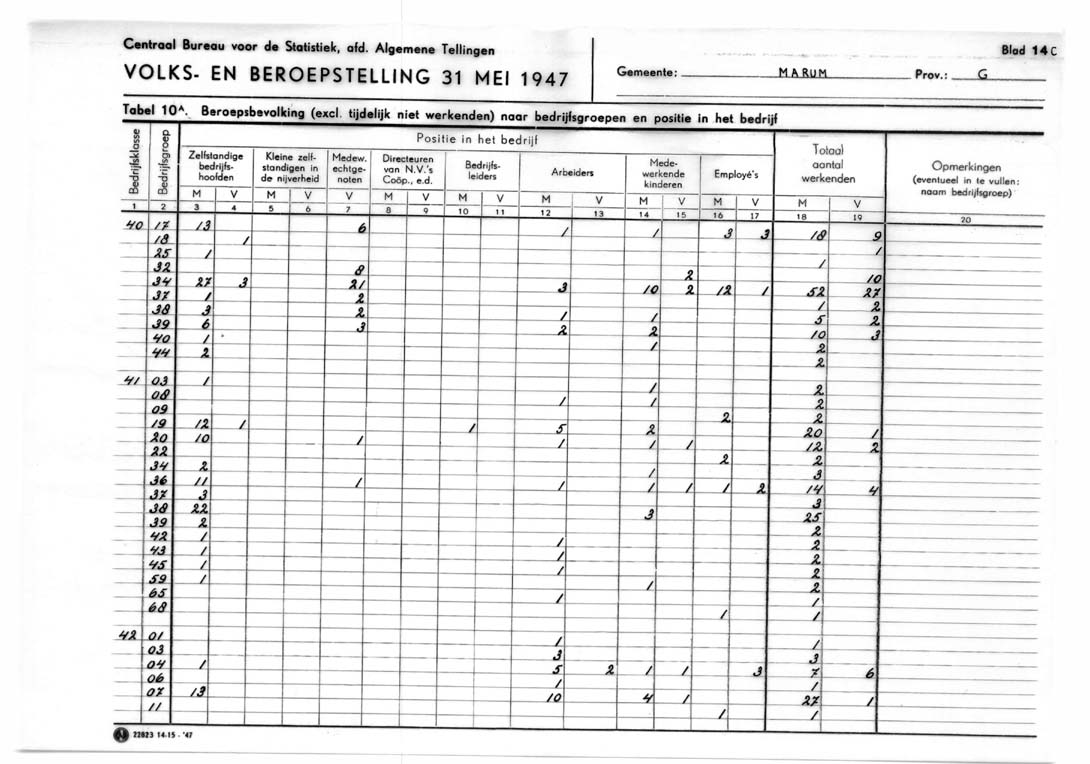 Centraal Bureau voor de Statistiek, afd. Algemene Tellingen
Blad 14C
VOLKS- EN BEROEPSTELLING 31 MEI 1947
Gemeente: MARUM Prov.: G
Tabel 10A. Beroepsbevolking (excl. tijdelijk niet werkenden) naar bedrijfsgroepen en positie in het bedrijf
Bedrijfsklasse
Bedrijfsgroep
Positie in het bedrijf
Zelfstandige bedrijfs- hoofden
Kleine zelf- standigen in de nijverheid
Medew. echtge- noten
Directeuren van N.V.'s Coöp., e.d.
Bedrijfs- leiders
Arbeiders
Mede- werkende kinderen
Employé's
Totaal aantal werkenden
Opmerkingen (eventueel in te vullen: naam bedrijfsgroep)
M V M V V M V M V M V M V M V M V
1 2 3 4 5 6 7 8 9 10 11 12 13 14 15 16 17 18 19 20
40 17 13 6 1 1 3 3 18 9
18 1 1
25 1 1
32 8 2 10
34 27 3 21 3 10 2 12 1 52 27
37 1 2 1 2
38 3 2 1 1 5 2
39 6 3 2 2 10 3
40 1 1 2
44 2 2
41 03 1 1 2
08 1 1 2
09 2 2
19 12 1 1 5 2 20 1
20 10 1 1 1 1 12 2
22 2 2
34 2 1 3
36 11 1 1 1 1 1 2 14 4
37 3 3
38 22 3 25
39 2 2
42 1 1 2
43 1 1 2
45 1 1 2
59 1 1 2
65 1 1
68 1 1
42 01 1 1
03 3 3
04 1 5 2 1 1 3 7 6
06 1 1
07 13 10 4 1 27 1
11 1 1
22823 14-15 - '47